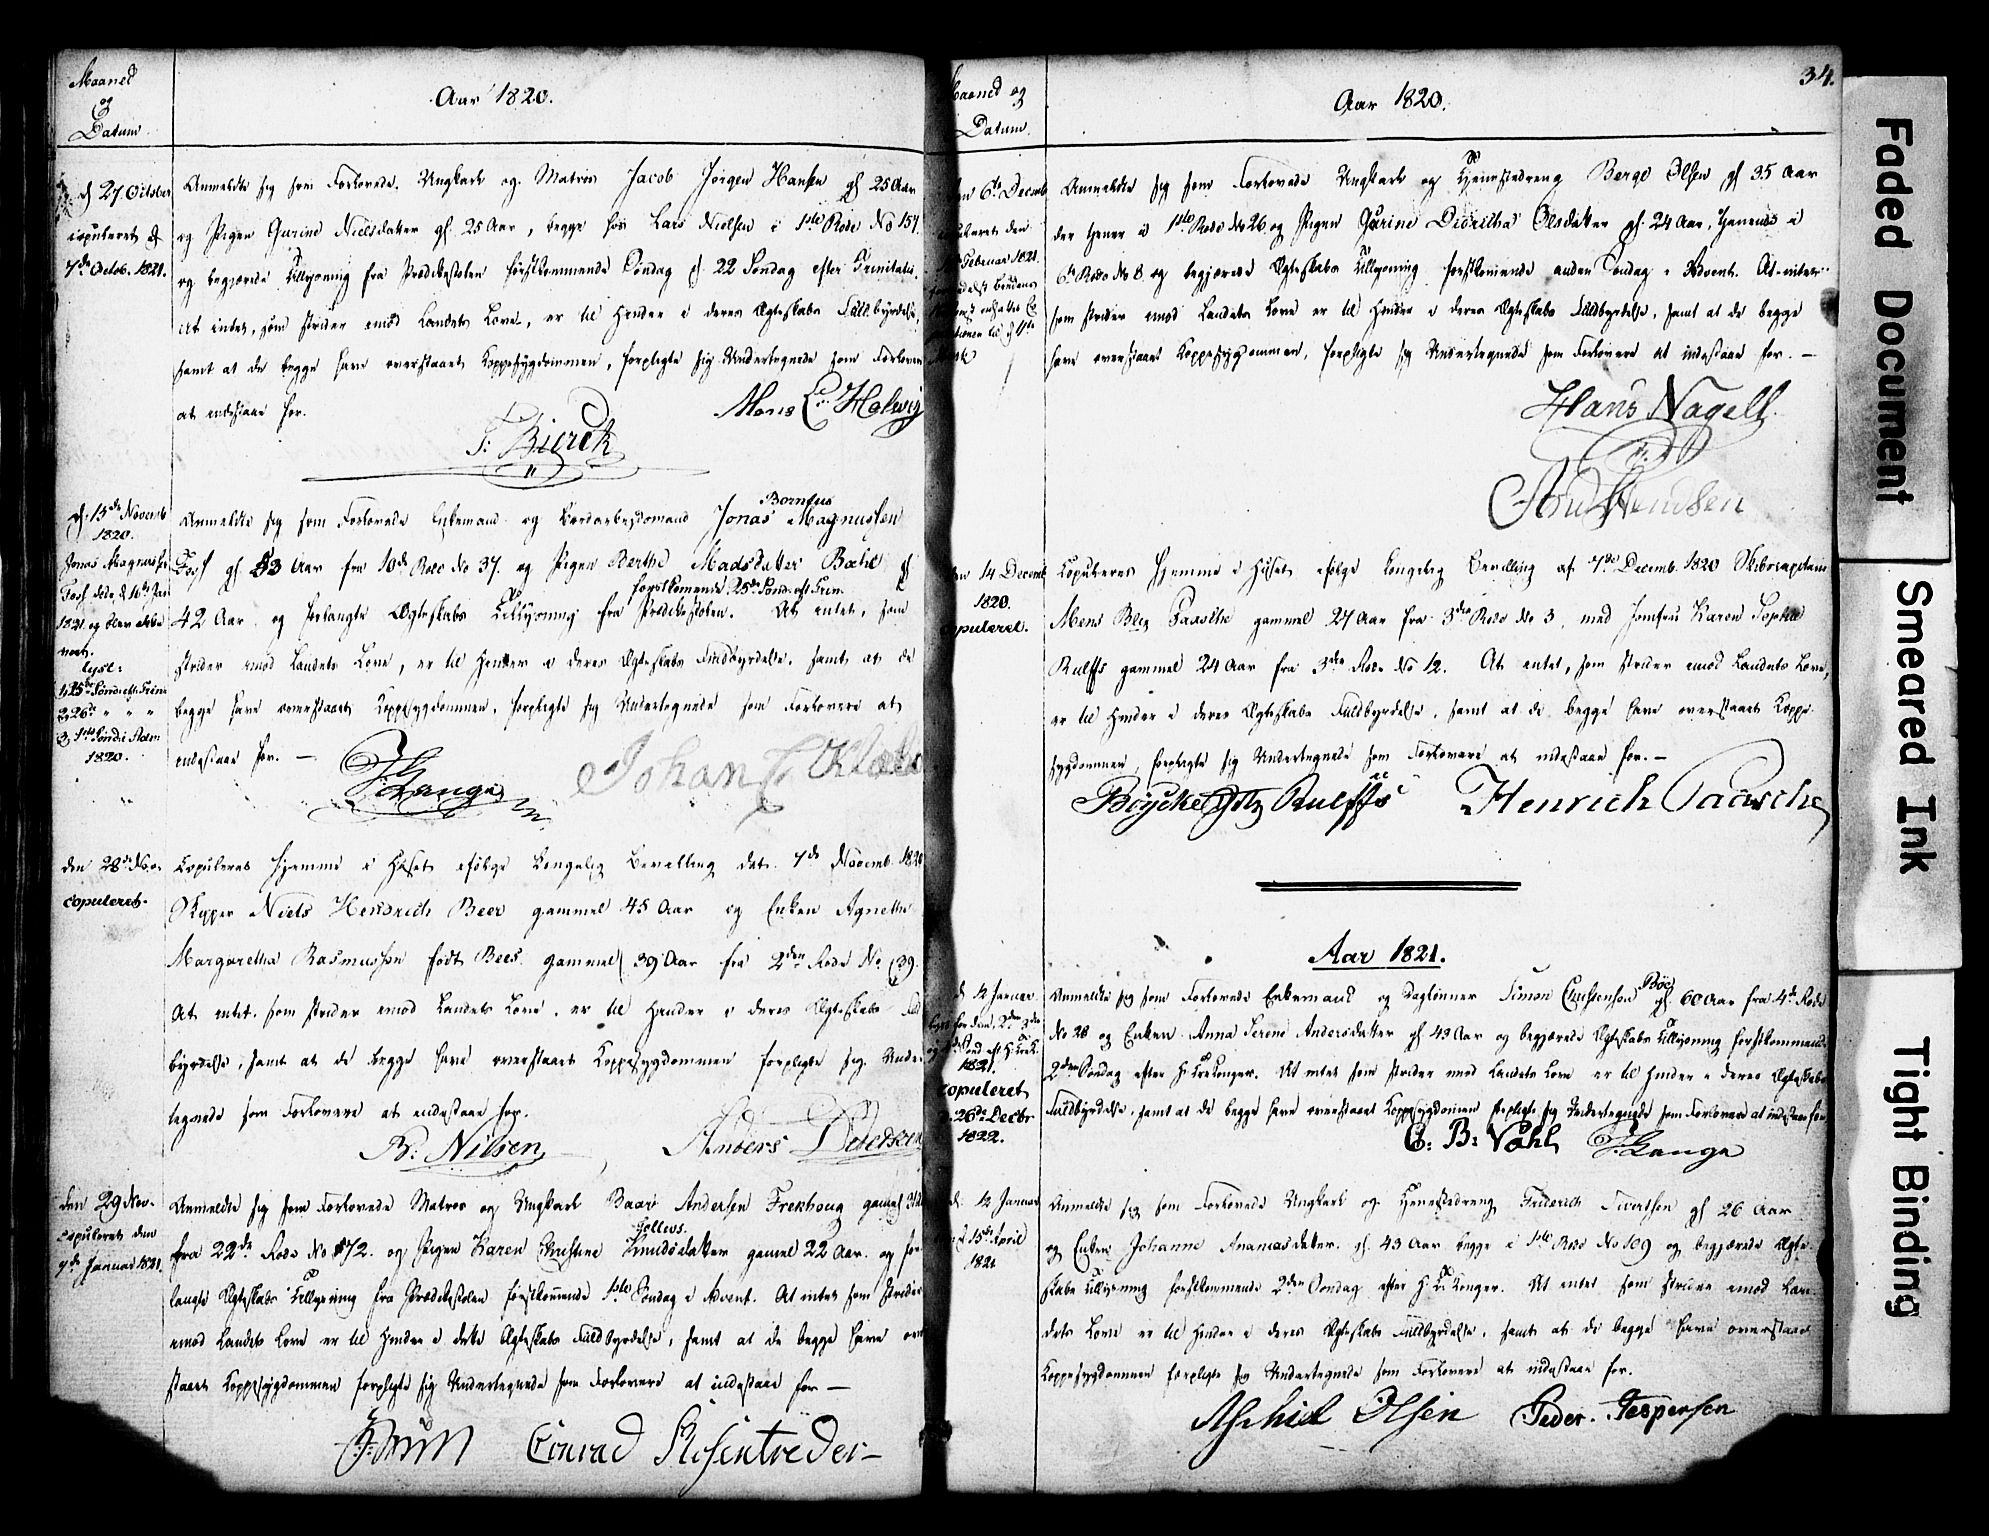 Maaned
og
Datum.
Aar 1820.
d. 27 October
copuleret d.
7de Octob. 1821.
Anmeldte sig som Forlovede, Ungkarl og Matros Jacob Jørgen Hansen gl 25 Aar
og Pigen Gurine Nielsdatter gl. 25 Aar, begge hos Lars Nielsen i 1ste Rode No 157.
og begjærede Tillysning fra Prædikestolen førstkommende Søndag d. 22 Søndag efter Trinitatis.
At intet, som strider imod Landets Love, er til Hinder i deres Ægteskabs Fuldbyrdelse,
samt at de begge have overstaaet Koppesygdommen, forpligte sig Undertegnede som Forlovere
at indestaae for.
Mons Helwig
Bierck
d. 15de Novemb
1820.
Jonas Magnussen
Foss døde d. 16de Jan
1821 og blev ikke
viet.
lyst:
1, 25de Sønd. eft. Trin
2, 26de " " "
3, 1ste Sønd. i Adv.
1820.
Bornfus
Anmeldte sig som Forlovede Enkemand og Bordarbeidsmand Jonas Magnussen
Foss gl. 53 Aar fra 10de Rode No 37. og Pigen Berthe Madsdatter Bahle gl
førstkommende 25de Sønd. eft Trin.
42 Aar og forlangte Ægteskabs Tillysning fra Prædikestolen. At intet, som
strider imod Landets Love, er til Hinder i deres Ægteskabs Fuldbyrdelse, samt at de
begge have overstaaet Koppesygdommen, forpligte sig Undertegnede som Forlovere at
indestaae for. —
Lange
Johan
den 28de Nov.
copuleret.
Copuleres hjemme i Huset ifølge Kongelig Bevilling dat. 7de Novemb. 1820
Skipper Niels Hendrich Beer gammel 45 Aar og Enken Agnethe
Margaretha Rasmussen født Bees gammel 39 Aar fra 2den Rode No 39.
At intet, som strider imod Landets Love, er til Hinder i deres Ægteskabs Fuld
byrdelse, samt at de begge have overstaaet Koppesygdommen forpligte sig Under
tegnede som Forlovere at indestaae for.
R. Nilsen
Anders Petersen
den 29 Nov.
copuleret den
7de Januar 1821.
Anmeldte sig som Forlovede Matros og Ungkarl Baar Andersen Frekhoug gammel
Gellevs.
fra 22de Rode No 72. og Pigen Karen Christine Knudsdatter gamel 22 Aar. og for
langte Ægteskabs Tillysning fra Prædikestolen førstkommende 1ste Søndag i Advent. At intet som strider
imod Landets Love er til Hinder i dette Ægteskabs Fuldbyrdelse, samt at de begge have over
staaet Koppesygdommen forpligte sig Undertegnede som Forlovere at indestaae for —
Conrad Rosentreder
34.
Maaned og
Datum.
Aar 1820.
den 6te Decemb
copuleret den
Februar 1821.
Anmeldte sig som Forlovede Ungkarl og Tjenestedreng Berge Olsen gl 35 Aar
der tjener i 1ste Rode No 26 og Pigen Gurine Didrikha Olsdatter gl. 24 Aar, tjenende i
6te Rode No 8 og begjærede Ægteskabs Tillysning førstkommende anden Søndag i Advent. At intet
som strider imod Landets Love er til Hinder i deres Ægteskabs Fuldbyrdelse, samt at de begge
have overstaaet Koppesygdommen, forpligte sig Undertegnede som Forlovere at indestaae for. —
Hans Nagell.
Knudsen
den 14 Decemb
1820.
copuleret.
Copuleres hjemme i Huset ifølge kongelig Bevilling af 7de Decemb. 1820 Skibscapitain
Mens Bleg Paasche gammel 27 Aar fra 3die Rode No 3, med Jomfru Karen Sophie
Rulffs gammel 24 Aar fra 3die Rode No 12. At intet, som strider imod Landets Love,
er til Hinder i deres Ægteskabs Fuldbyrdelse, samt at de begge have overstaaet Koppe
sygdommen, forpligte sig Undertegnede som Forlovere at indestaae for. —
Rulffs Henrich Paasche
Aar 1821.
d. 12 Januar
lyst første, 2den 3die
1821.
copuleret
26de Decbr
1822.
Bøe
Anmeldte sig som Forlovede Enkemand og Daglønner Simon Christensen gl. 60 Aar fra 4de Rode
No 28 og Enken Anna Serine Andersdatter gl 42 Aar og begjærede Ægteskabs Tillysning førstkommende
2den Søndag efter H. Tre Konger. At intet som strider imod Landets Love er til Hinder i deres Ægteskabs
Fuldbyrdelse, samt at de begge have overstaaet Koppesygdommen forpligte sig Undertegnede som Forlovere at indestaae for
C. B: Vahl Lange
d. 12 Januar
d 15de April
1821
Anmeldte sig som Forlovede Ungkarl og Tjenestedreng Friderich Sivertsen gl 26 Aar
og Enken Johanne Ananiasdatter gl. 43 Aar begge i 1ste Rode No 109 og begjærede Ægte
skabs Tillysning førstkommende 2den Søndag efter H. Tre Konger. At intet som strider imod Lan
dets Love er til Hinder i deres Ægteskabs Fuldbyrdelse, samt at de begge have overstaaet
Koppesygdommen forpligte sig Undertegnede som Forlovere at indestaae for.
Aschiel Olsen Peder Jespersen
Faded Document
Smeared Ink
Tight Binding